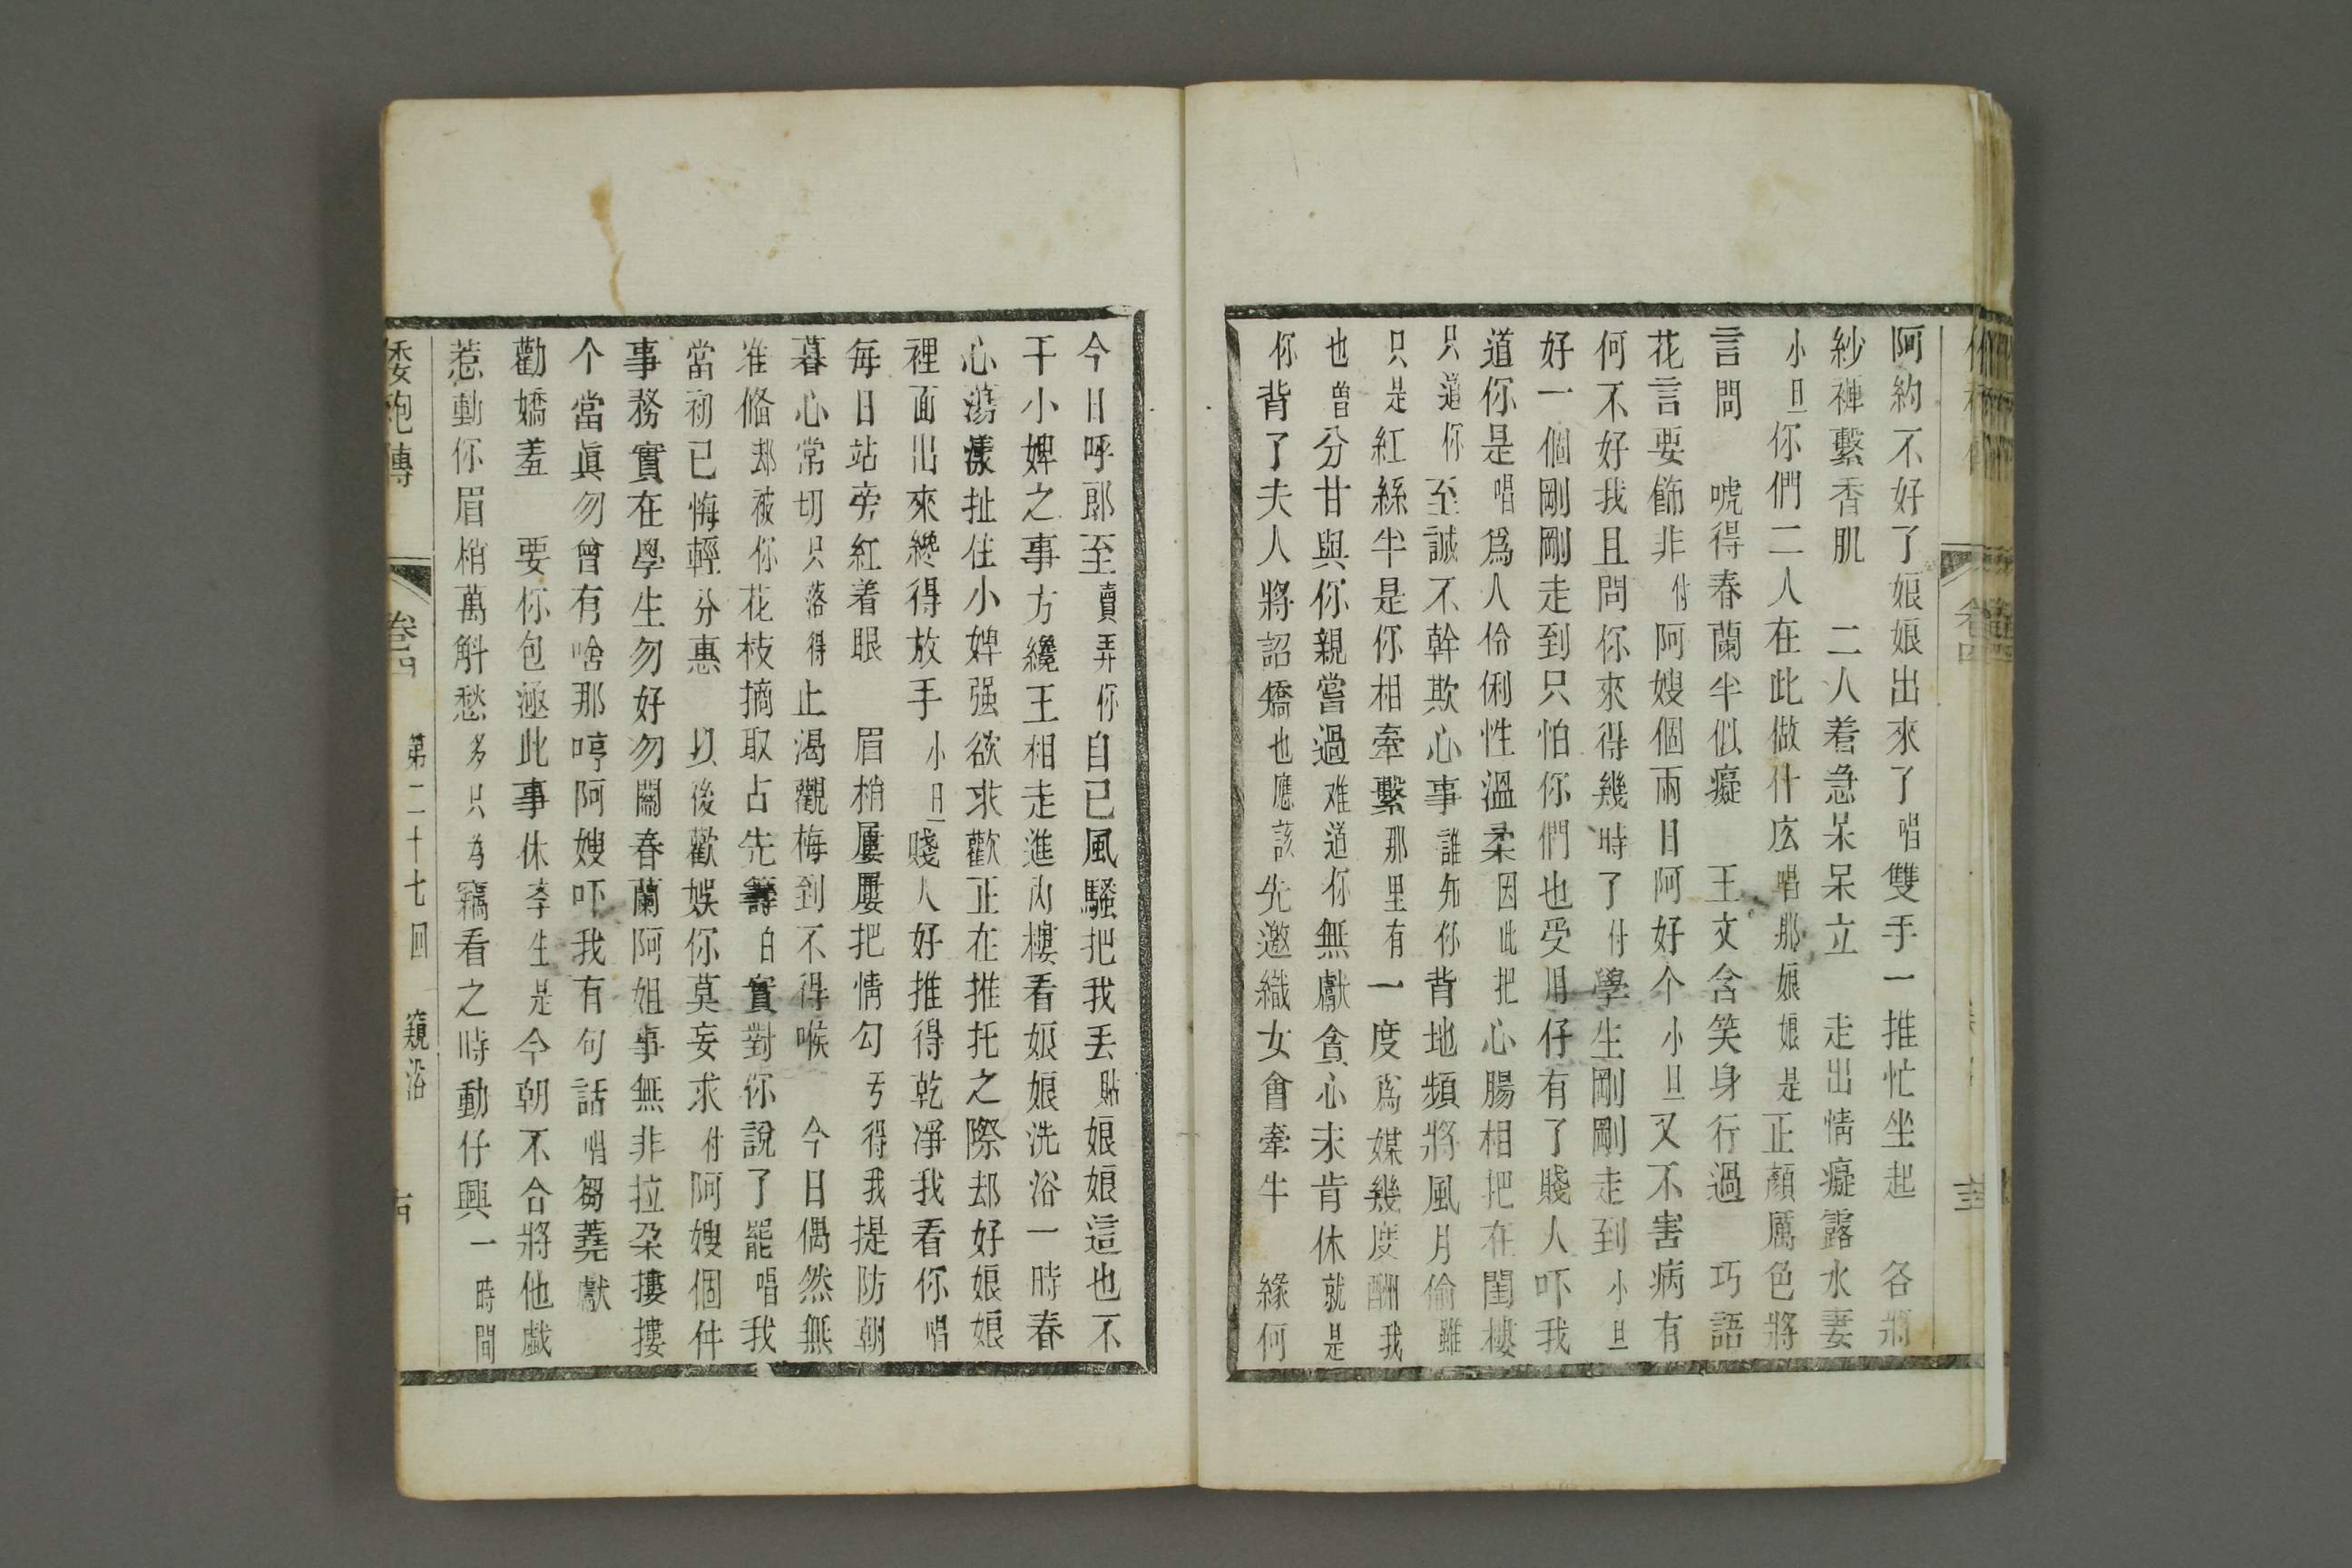 阿約不好了娘娘出來了唱雙手一推忙坐起　各將
紗褲繫香肌　二人着急呆呆立　走出情癡露水妻
小旦你們二人在此做什庅唱那娘娘是正顏厲色將
言問　唬得春蘭半似癡　王文含笑身行過　巧語
花言要飾非付阿嫂個兩日阿好个小旦又不害病有
何不好我且問你來得幾時了付學生剛剛走到小旦
好一個剛剛走到只怕你們也受用仔有了賤人吓我
道你是唱爲人伶俐性溫柔因此把心腸相把在閨樓
只道你至誠不幹欺心事誰知你背地頻將風月偷雖
只是紅絲半是你相牽繫那里有一度爲媒幾度酬我
也曽分甘與你親嘗過难道你無獻貪心未肯休就是
你背了夫人將詔矯也應該先邀織女會牽牛　緣何
今日呼郎至賣弄你自已風騷把我丢貼娘娘這也不
干小婢之事方纔王相走進內樓看娘娘洗浴一時春
心蕩漾扯住小婢强欲求歡正在推托之際却好娘娘
裡面出來纔得放手小旦賤人好推得乾淨我看你唱
每日站旁紅着眼　眉梢屢屢把情勾亐得我提防朝
暮心常切只落得止渴觀梅到不得喉　今日偶然無
准俻却被你花枝摘取占先籌白實對你說了罷唱我
當初已悔輕分惠　以後歡娛你莫妄求付阿嫂個件
事務實在學生勿好勿關春蘭阿姐事無非拉朶摟摟
个當眞勿曾有啥那哼阿嫂吓我有句話唱芻蕘獻
勸嬌羞　要你包涵此事休李生是今朝不合將他戯
惹動你眉梢萬斛愁多只为竊看之時動仔興一時間
倭袍傳　卷四　第二十七回　窺浴